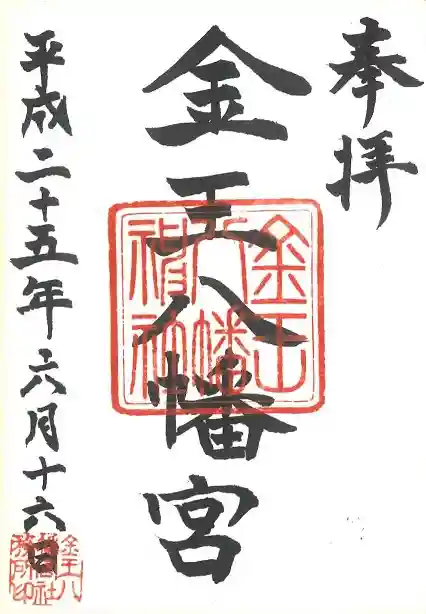 奉拝
金王八幡宮
金王
八幡
神社
平成二十五年六月十六日
金王八
幡宮社
務所印